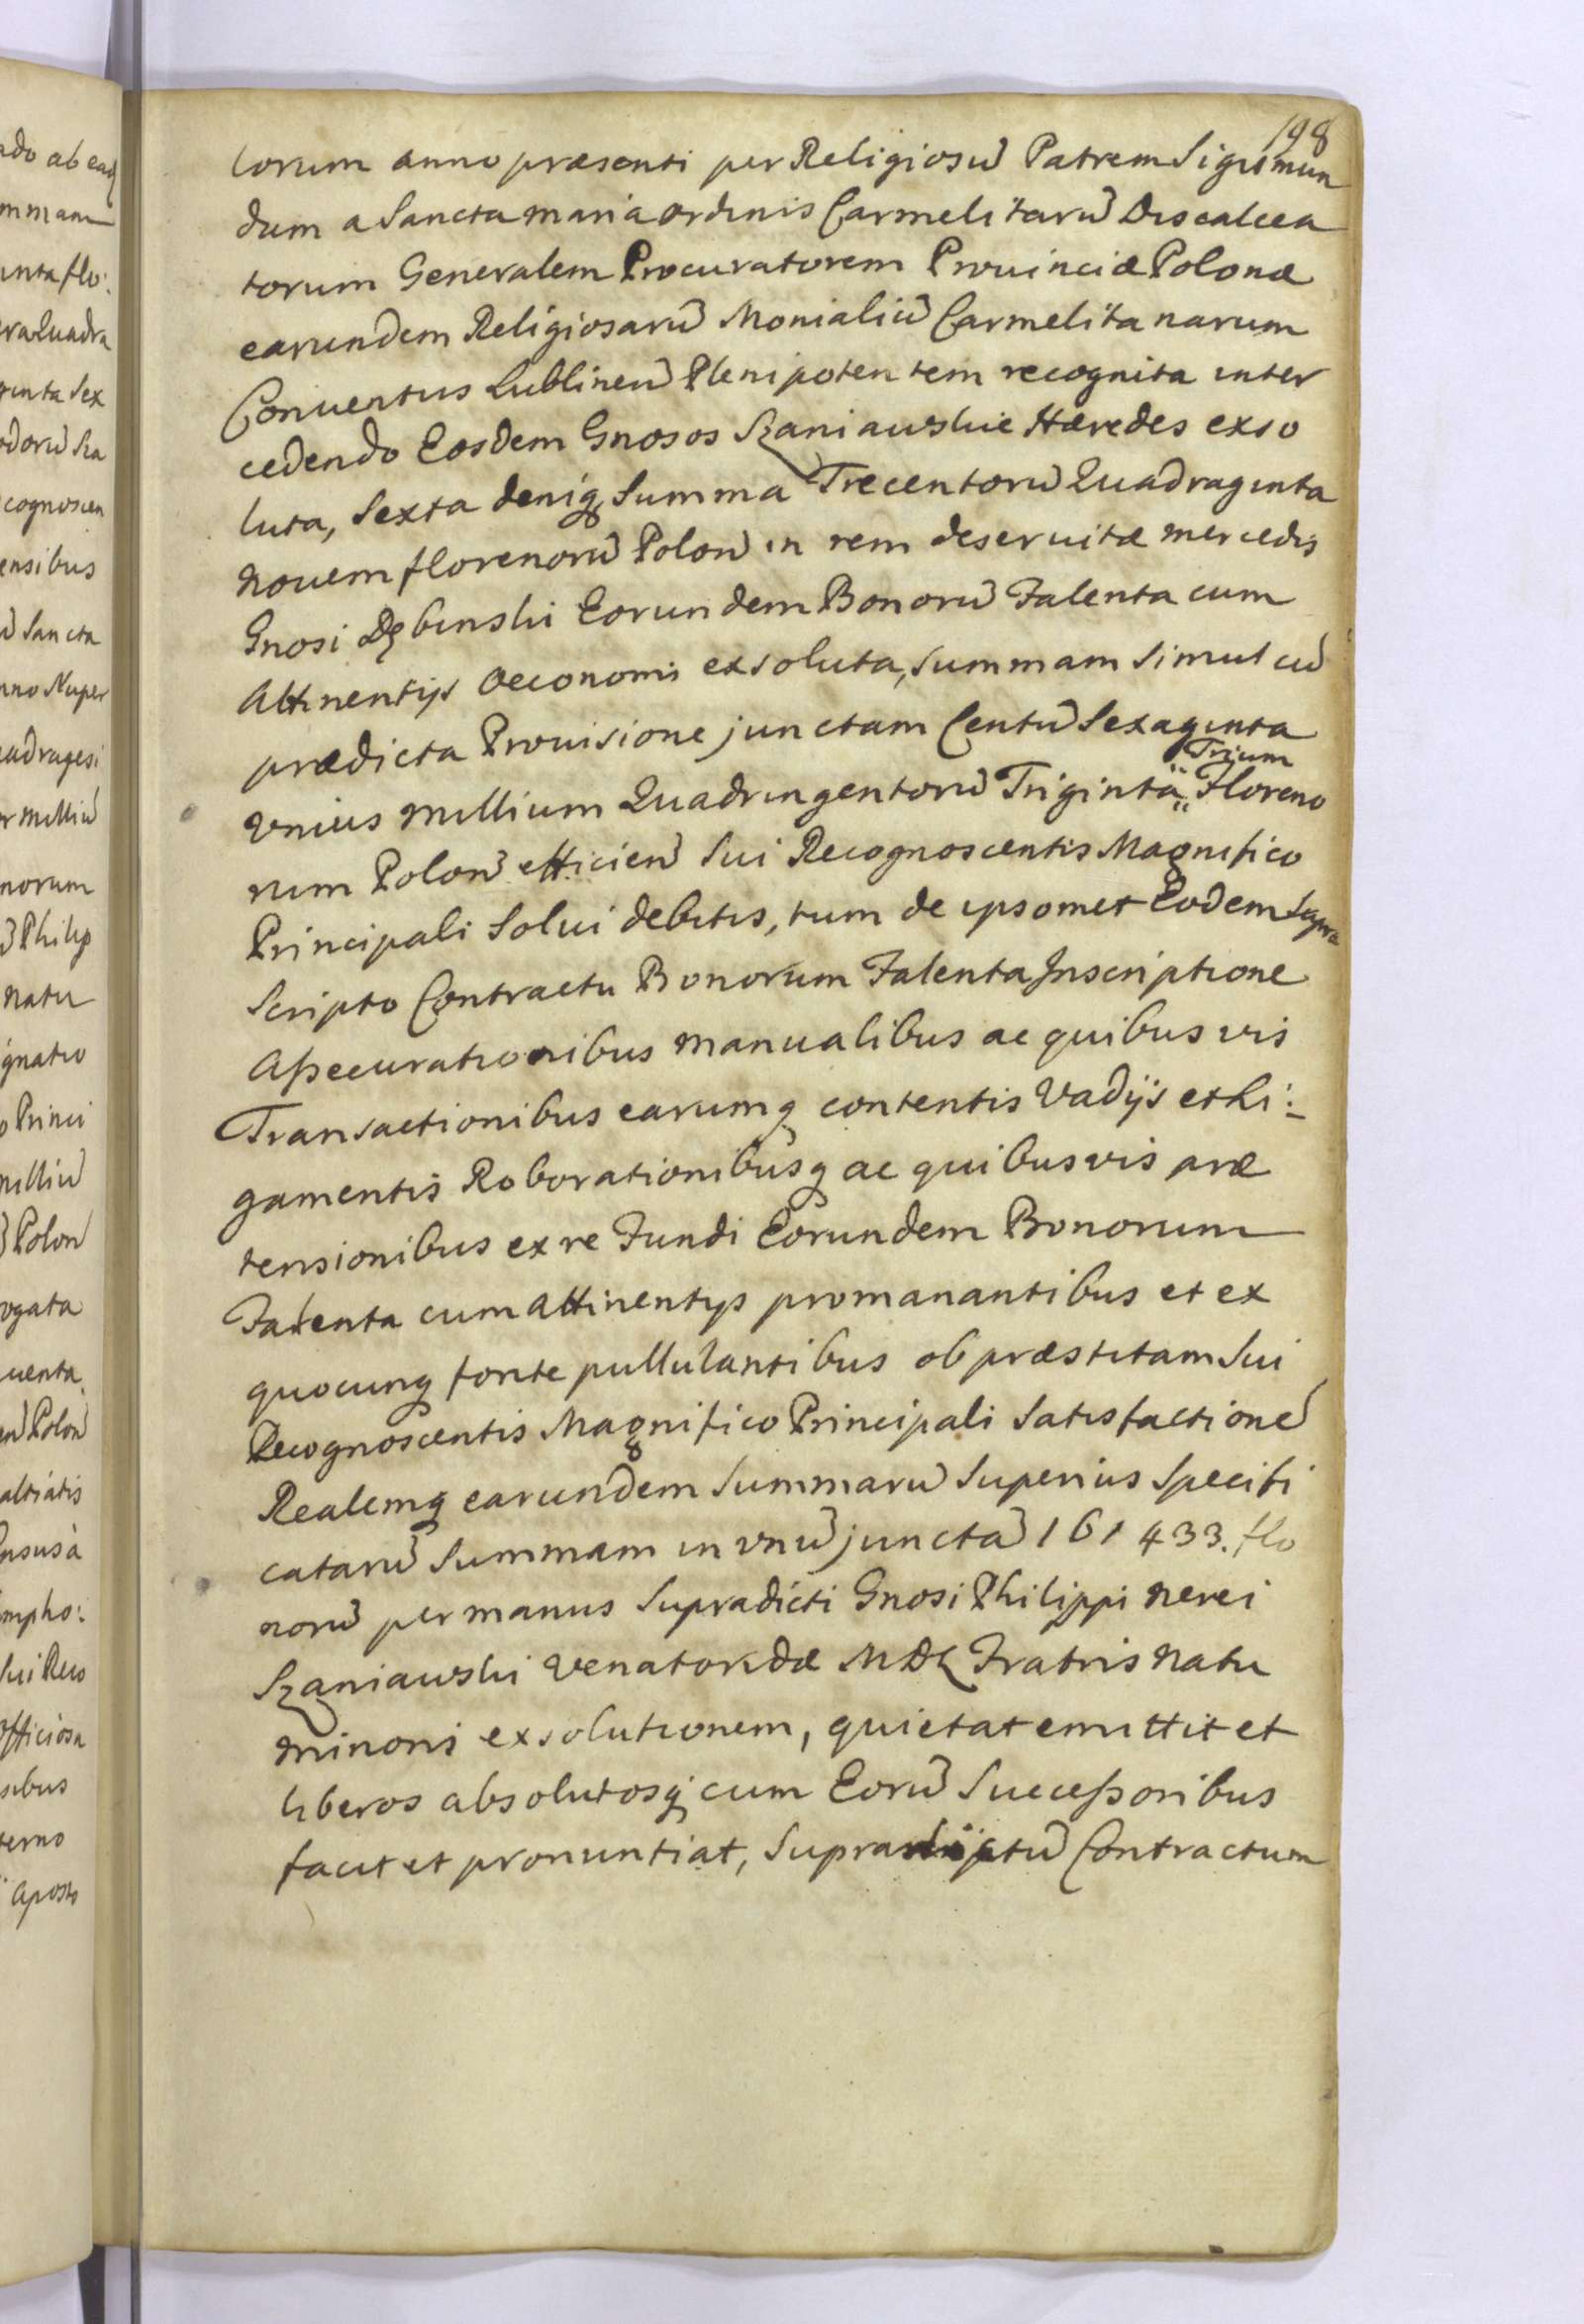 198
lorum anno præsenti per Religiosu͠ Patrem Sigismun
dum a Sancta maria ordinis Carmelitaru͠ Discalcea
torum Generalem Procuratorem Prouinciæ Polonæ
earundem Religiosaru͠ Monialiu͠ Carmelitanarum
Conuentus Lublinen͠ Plenipotentem recognita inter
cedendo Eosdem Gnosos Szaniawskie Hæredes exso
luta, Sexta deniq Summa Trecentoru͠ Quadraginta
nouem florenoru͠ Polon͠ in rem deseruitæ mercedis
Gnosi Dębinski Eorundem Bonoru͠ Falenta cum
Attinentijs Oeconomi exsoluta, summam simul cu͠
prædicta Prouisione junctam Centu͠ Sexaginta
Trium
vnius millium Quadringentoru͠ Triginta Floreno
rum Polon͠ efficien͠ Sui Recognoscentis Magnifico
Principali Solui debitis, tum de ipsomet Eodem Supra
Scripto Contractu Bonorum Falenta Inscriptione
Aßecurationibus manualibus ac quibusvis
Transactionibus earumq contentis Vadijs et Li:
gamentis Roborationibusq ac quibusvis præ
tensionibus ex re Fundi Eorundem Bonorum
Falenta cum Attinentijs promanantibus et ex
quocunq fonte pullulantibus ob præstitam Sui
Recognoscentis Magnifico Principali Satisfactione͠
Realemq earundem Summaru͠ Superius Specifi
cataru͠ Summam in vnu͠ juncta͠ 161433. flo
noru͠ per manus Supradicti Gnosi Philippi nerei
Szaniawski Venatoridæ MDL Fratris natu
minoris exsolutionem, quietat emittit et
liberos absolutosq cum Eoru͠ Succeßoribus
facit et pronuntiat, Contractum